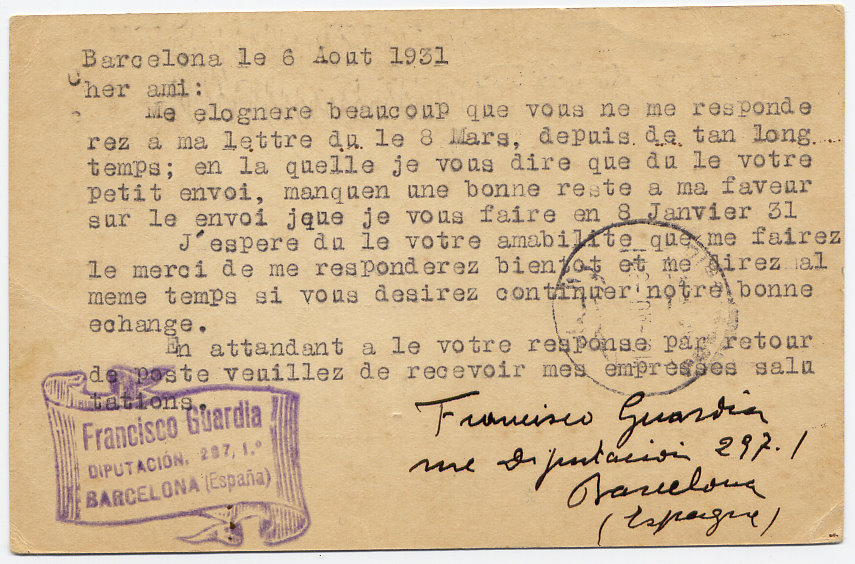 Barcelona le 6 Aout 1931
Cher ami:
Me elognere beaucoup que vous ne me responde
rez a ma lettre du le 8 Mars, depuis de tan long
temps; en la quelle je vous dire que du le votre
petit envoi, manquen une bonne reste a ma faveur
sur le envoi jque je vous faire en 8 Janvier 31
J'espere du le votre amabilite que me fairez
le merci de me responderez bientot et me direz al
meme temps si vous desirez continuer notre bonne
echange.
En attandant a le votre response par retour
de poste veuillez de recevoir mes empresses salu
tations.
Francisco Guardia
DIPUTACIÓN, 297, 1.º
BARCELONA (España)
Francisco Guardia
rue Diputación 297.1
Barcelona
(Espagne)